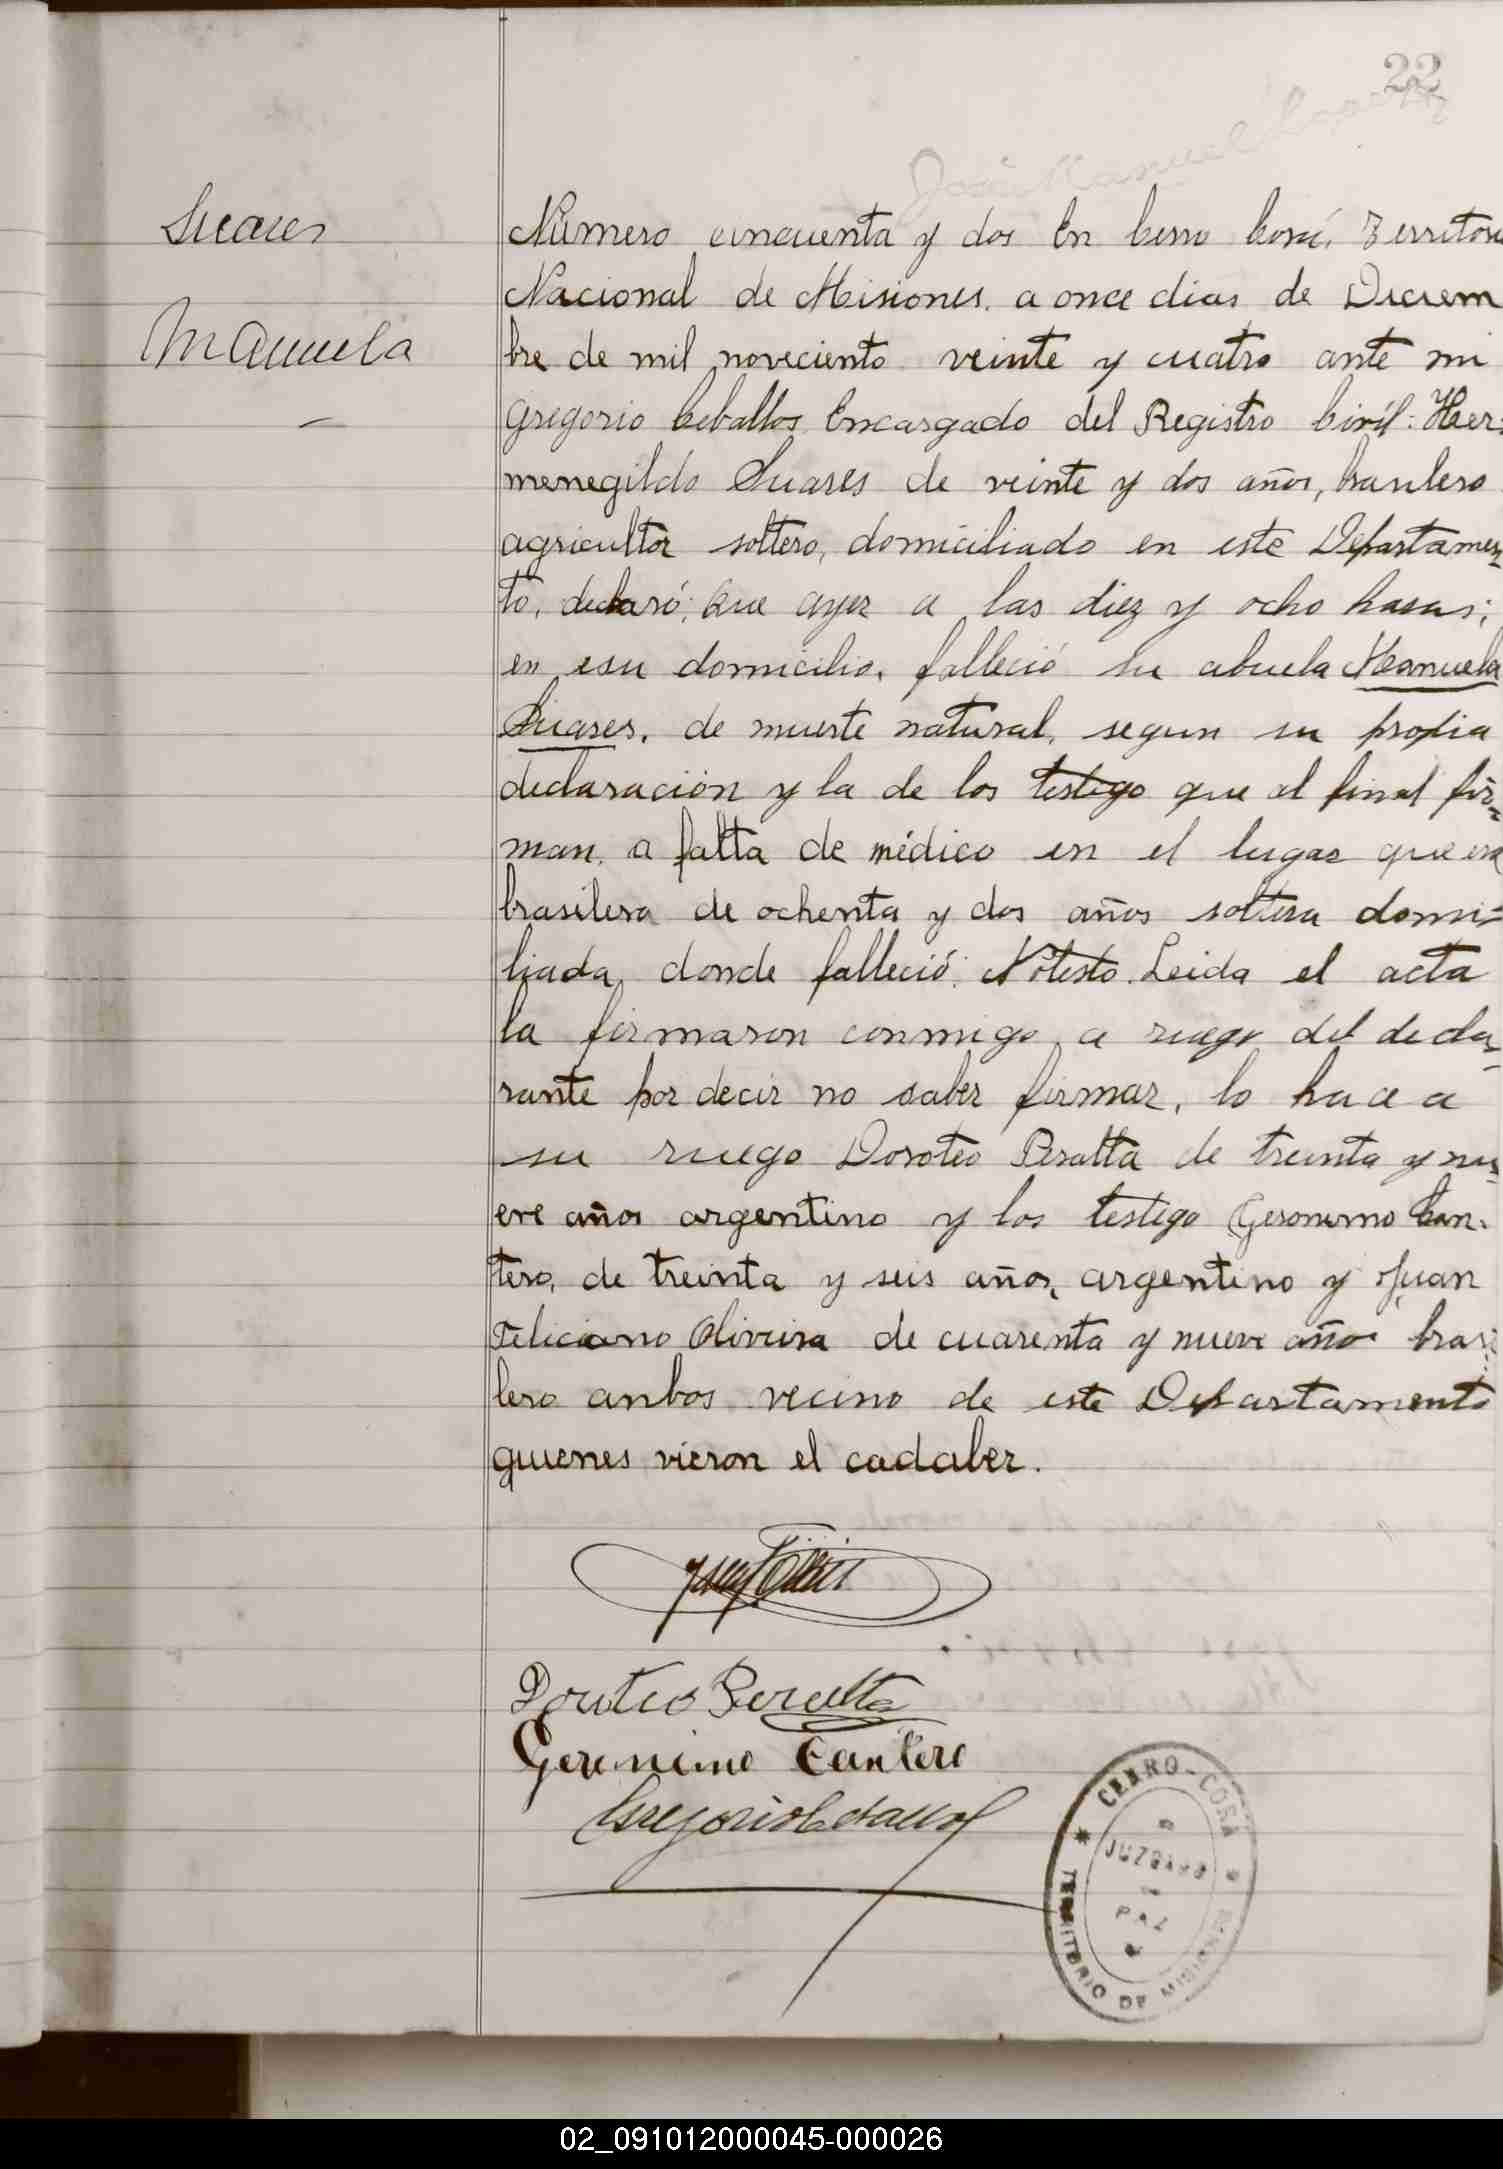 22
José Manuel
Suares
Manuela
Número cincuenta y dos En Cerro Corá, Territorio
Nacional de Misiones. a once dias de Diciem
bre de mil noveciento veinte y cuatro ante mi
Gregorio Ceballos Encargado del Registro Civil: Her=
menegildo Suares de veinte y dos años, brasilero
agricultor soltero, domiciliado en este Departamen
to, declaró; Que ayer a las diez y ocho horas;
en esu domicilio, falleció su abuela Manuela
Suares, de muerte natural, segun su propia
declaración y la de los testigo que al final fir-
man, a falta de médico en el lugar que era
brasilera de ochenta y dos años soltera domi=
liada, donde falleció. Nótesto. Leida el acta
la firmaron conmigo, a ruego del decla-
rante por decir no saber firmar, lo hace a
su ruego Doroteo Peralta de treinta y nu-
eve años argentino y los testigo Geronimo Can-
tero, de treinta y seis años, argentino y Juan
Feliciano Oliveira de cuarenta y nueve año brasi
lero anbos vecino de este Departamento
quienes vieron el cadaber.
Doroteo Peralta
Geronimo Cantero
Gregorio Ceballos
CERRO-CORÁ
JUZGADO
DE
PAZ
TERRITORIO DE MISIONES
02_091012000045-000026